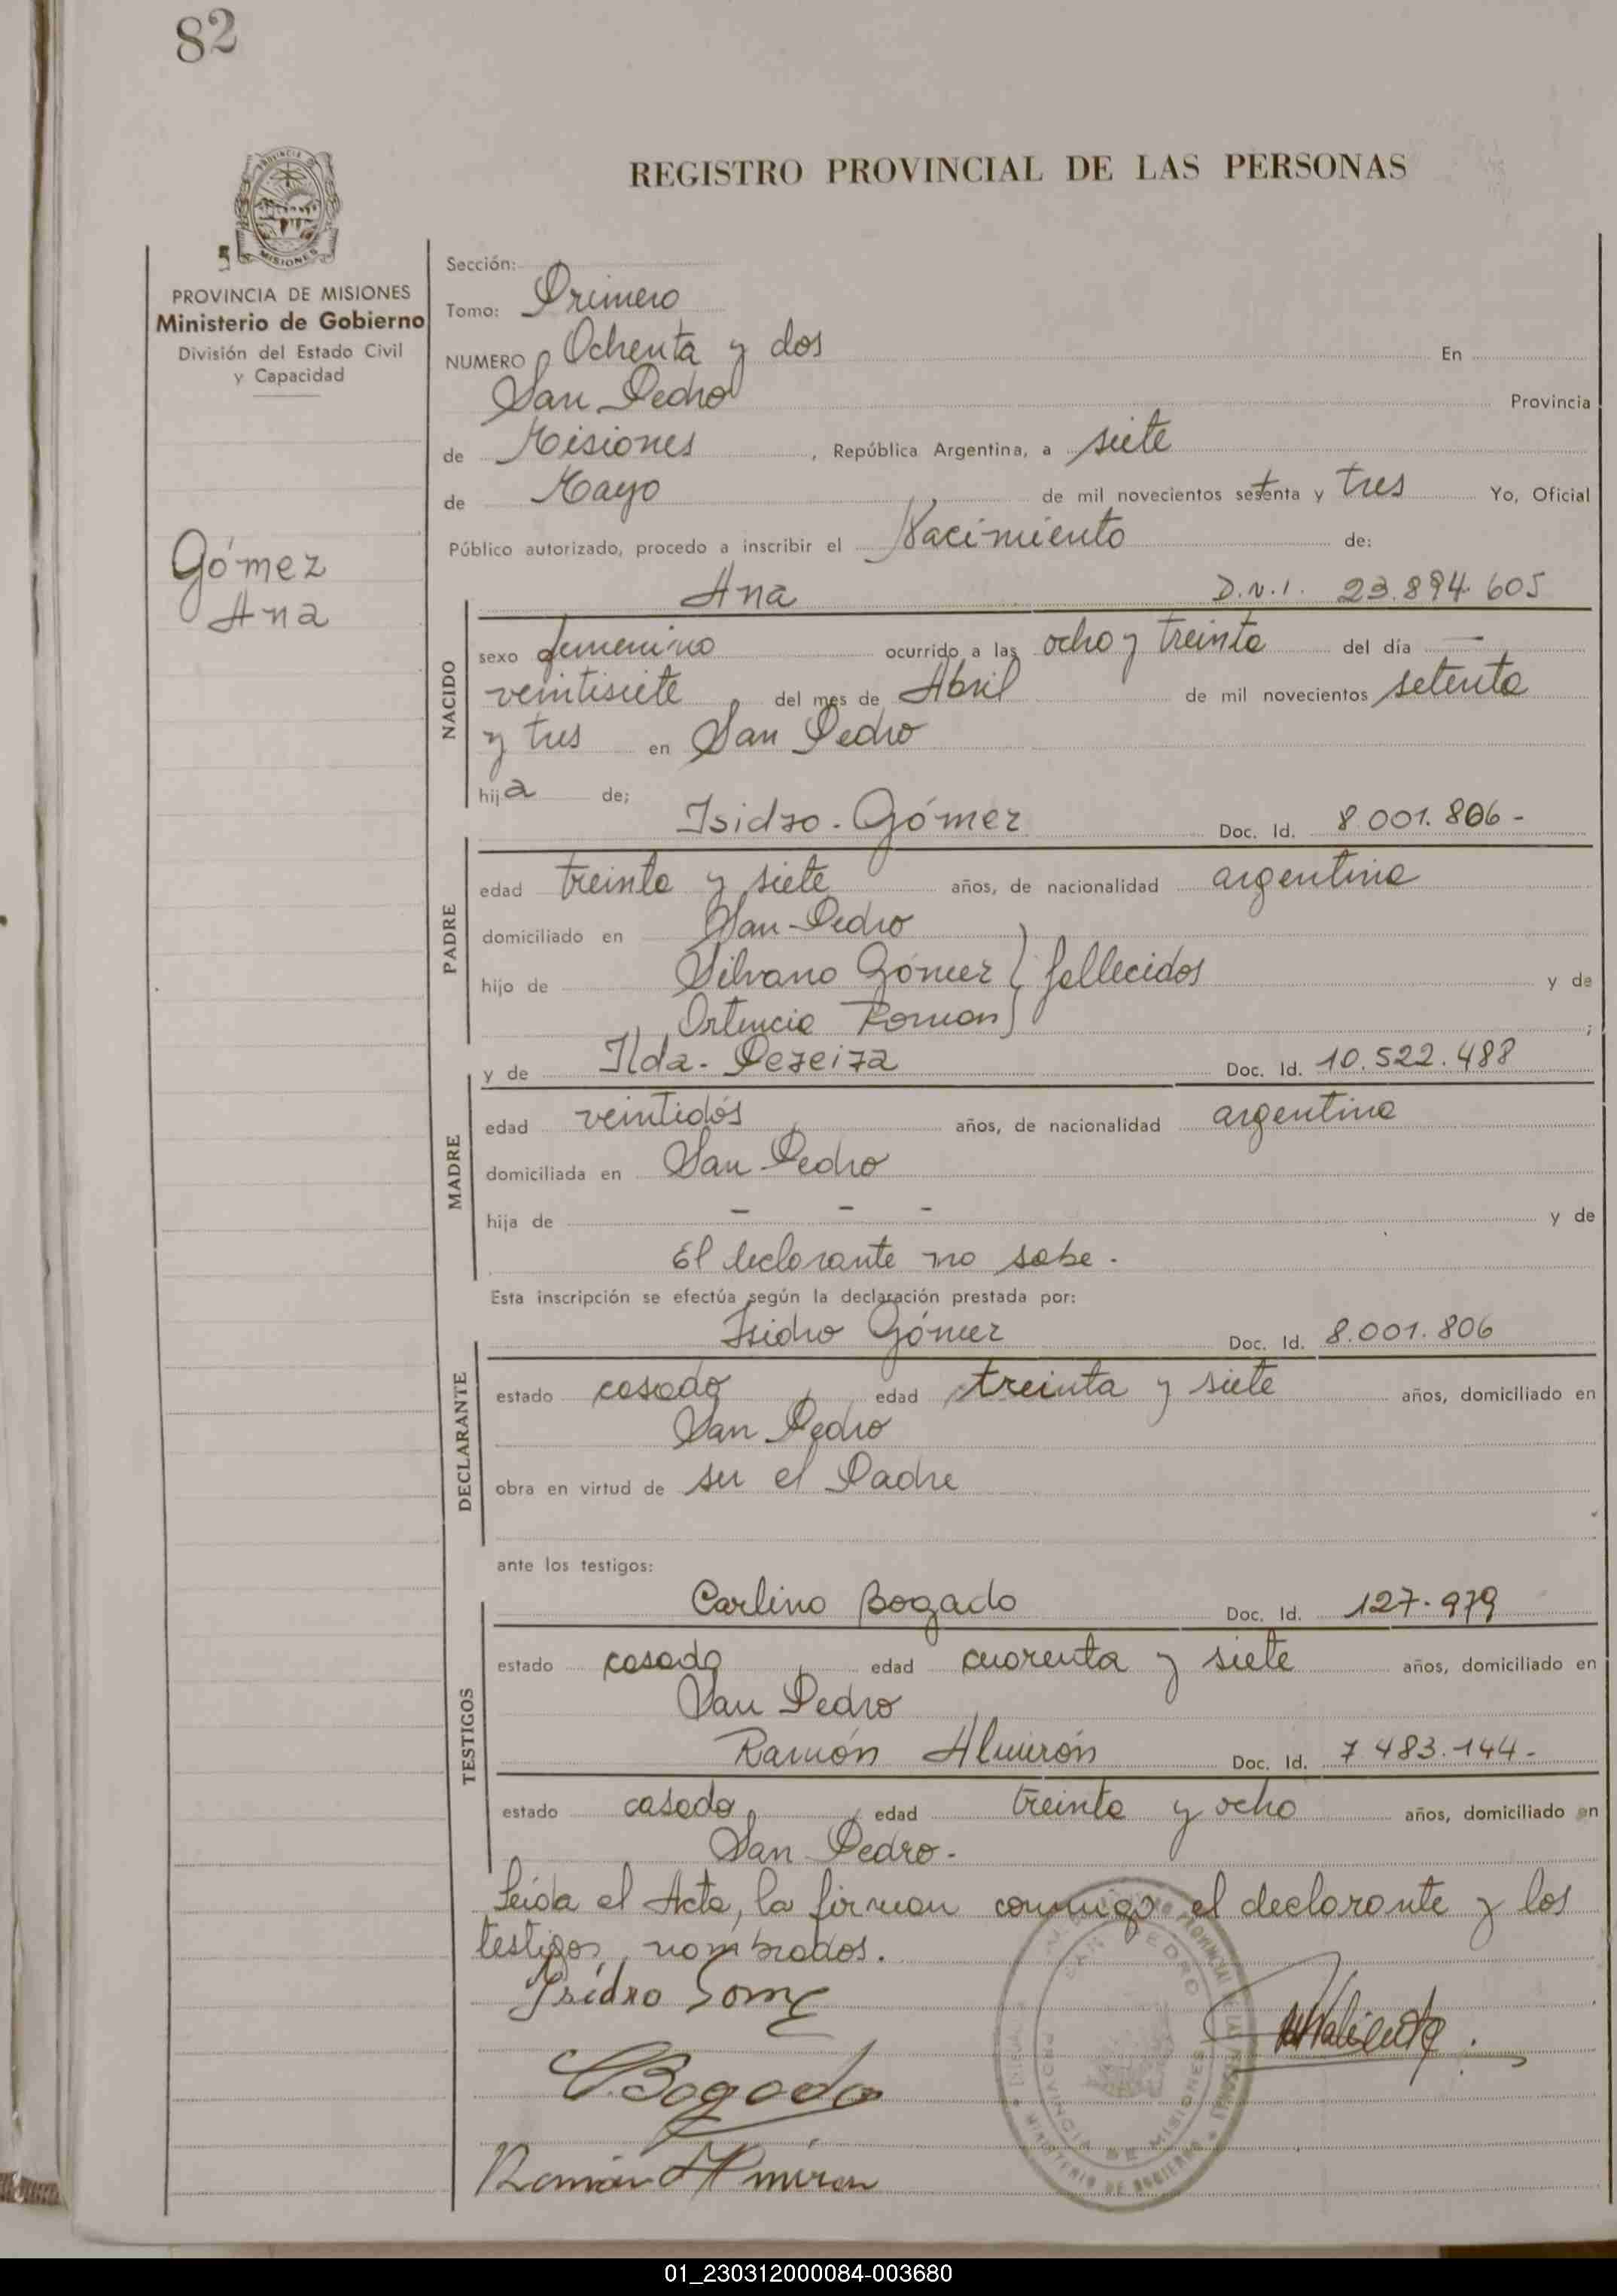 82
REGISTRO PROVINCIAL DE LAS PERSONAS
MISIONES
PROVINCIA DE MISIONES
Ministerio de Gobierno
División del Estado Civil
y Capacidad
Gómez
Ana
Sección:
Tomo: Primero
NUMERO Ochenta y dos En
San Pedro Provincia
de Misiones , República Argentina, a siete
de Mayo de mil novecientos setenta y tres Yo, Oficial
Público autorizado, procedo a inscribir el Nacimiento de:
Ana D.N.I. 23.894.605
NACIDO
sexo femenino ocurrido a las ocho y treinta del día —
veintisiete del mes de Abril de mil novecientos setenta
y tres en San Pedro
hija de;
Isidro - Gómez Doc. Id. 8.001.806 -
PADRE
edad treinta y siete años, de nacionalidad argentina
domiciliado en San Pedro
hijo de Silvano Gómez } fallecidos y de
Ortencia Roman ;
y de Ilda - Pereira Doc. Id. 10.522.488
MADRE
edad veintidós años, de nacionalidad argentina
domiciliada en San Pedro
hija de - - - y de
El declarante no sabe.
Esta inscripción se efectúa según la declaración prestada por:
Isidro Gómez Doc. Id. 8.001.806
DECLARANTE
estado casado edad treinta y siete años, domiciliado en
San Pedro
obra en virtud de ser el Padre
ante los testigos:
Carlino Bogado Doc. Id. 127.979
TESTIGOS
estado casado edad cuarenta y siete años, domiciliado en
San Pedro
Ramón Almirón Doc. Id. 7.483.144 -
estado casado edad treinta y ocho años, domiciliado en
San Pedro -
Leída el Acta, la firman conmigo el declarante y los
testigos nombrados.
Isidro Gome
C. Bogado
Ramón Almiron
SAN PEDRO
PROVINCIA DE MISIONES
MINISTERIO DE GOBIERNO
01_230312000084-003680